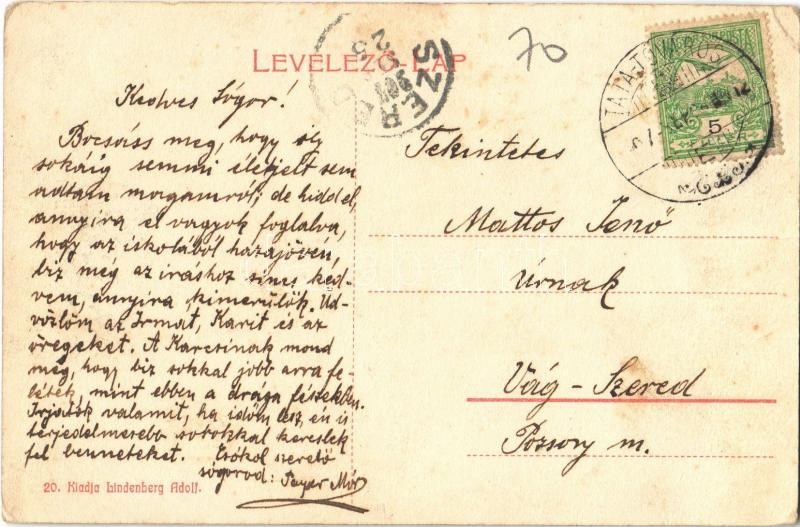 LEVELEZŐ-LAP
70
SZERED
TATA-TÓVÁROS
5
Kedves Sógor!
Bocsáss meg, hogy oly
sokáig semmi életjelt sem
adtam magamról; de hidd el,
annyira el vagyok foglalva,
hogy az iskolából hazajövén,
biz még az iráshoz sincs ked-
vem, annyira kimerülök. Üd-
vözlöm az Irmát, Karit és az
öregeket. A Karcsinak mond
meg, hogy biz sokkal jobb arra fe-
létek, mint ebben a drága fészekben.
Irjatok valamit, ha időm lesz, én is
terjedelmesebb sorokkal kereslek
fel benneteket. Csókol szerető
sógorod: Payer Mór
Tekintetes
Mattos Jenő
Úrnak
Vág-Szered
Pozsony m.
20. Kiadja Lindenberg Adolf.